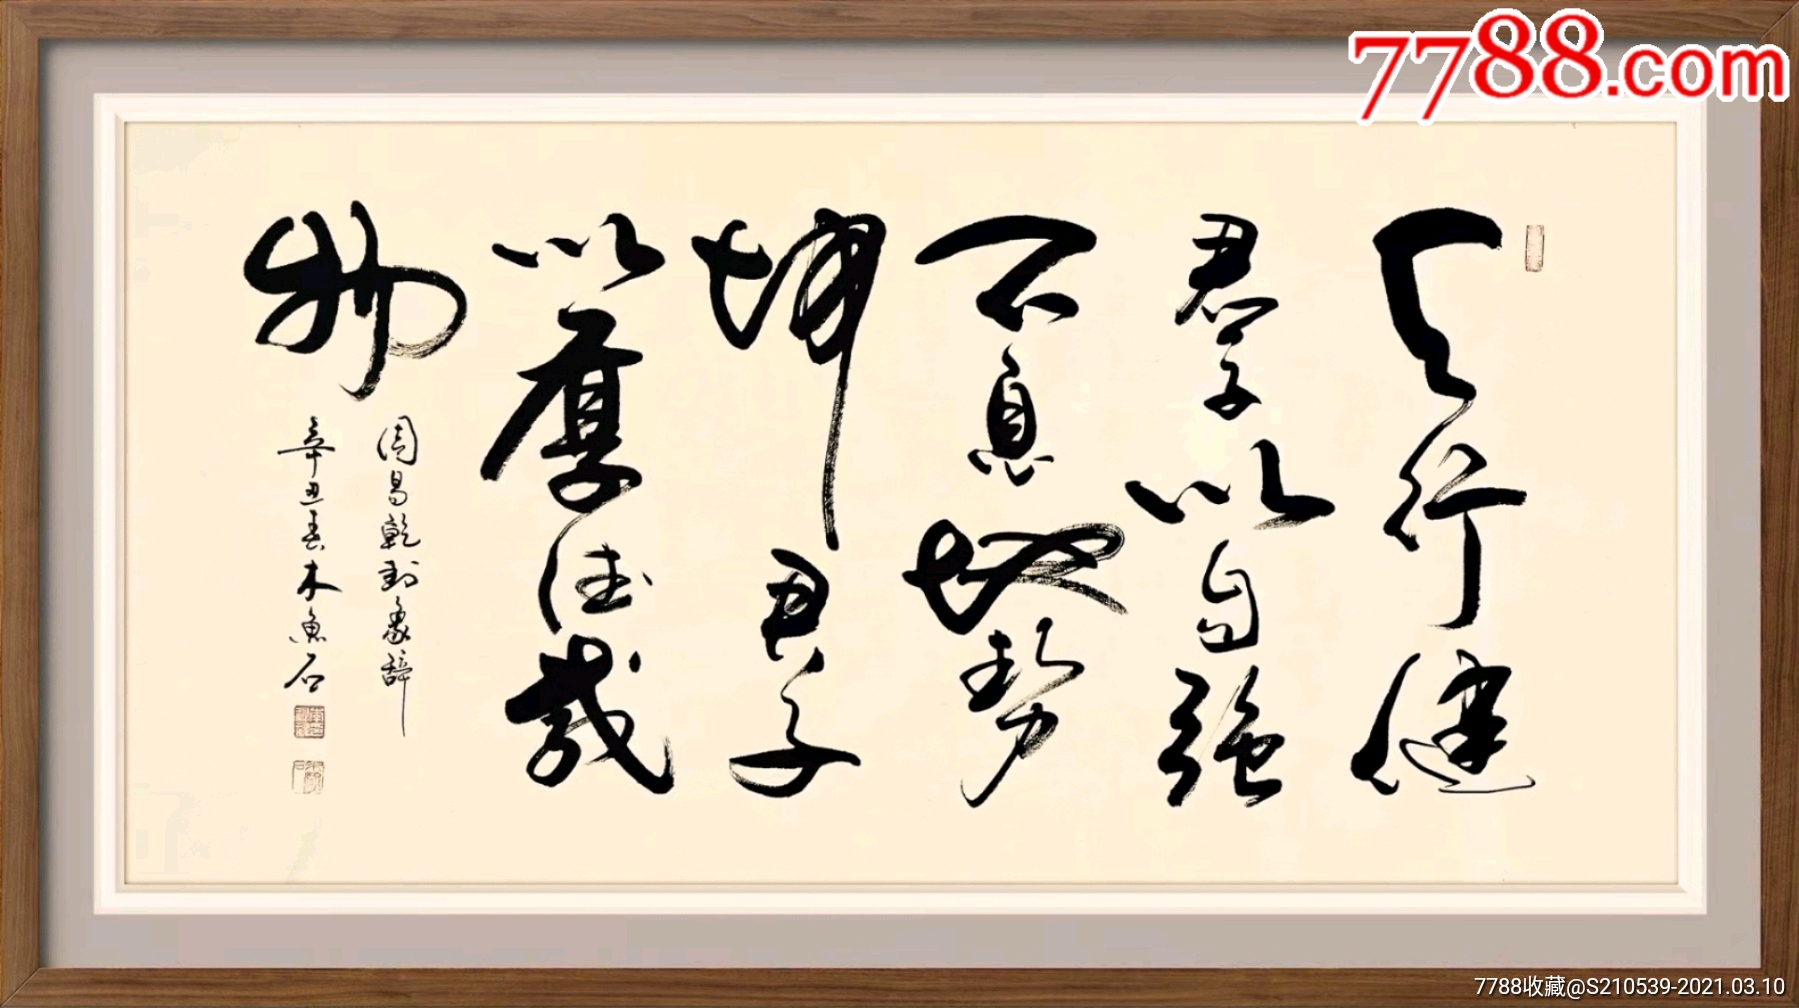 7788.com
天行健
君子以自强
不息地势
坤君子
以厚德载
物
周易乾卦象辞
辛丑春木鱼石
7788收藏@S210539-2021.03.10